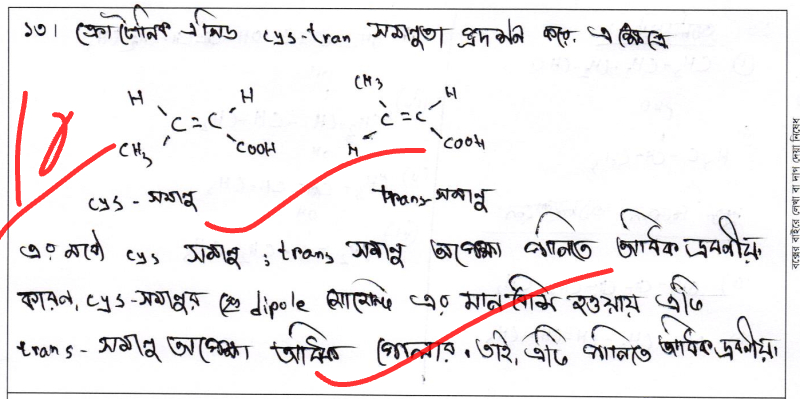 ১৩। ক্রোটোনিক এসিড cys-tran সমাণুতা প্রদর্শন করে. এক্ষেত্রে
H H CH₃ H
C = C C = C
CH₃ COOH H COOH
cys - সমাণু trans-সমাণু
এর মধ্যে cys সমাণু ; trans সমাণু অপেক্ষা পানিতে অধিক দ্রবণীয়।
কারণ, cys-সমাণুর dipole মোমেন্ট এর মান বেশি হওয়ায় এটি
trans - সমাণু অপেক্ষা অধিক পোলার. তাই, এটি পানিতে অধিক দ্রবণীয়।
বক্সের বাইরে লেখা বা দাগ দেয়া নিষেধ